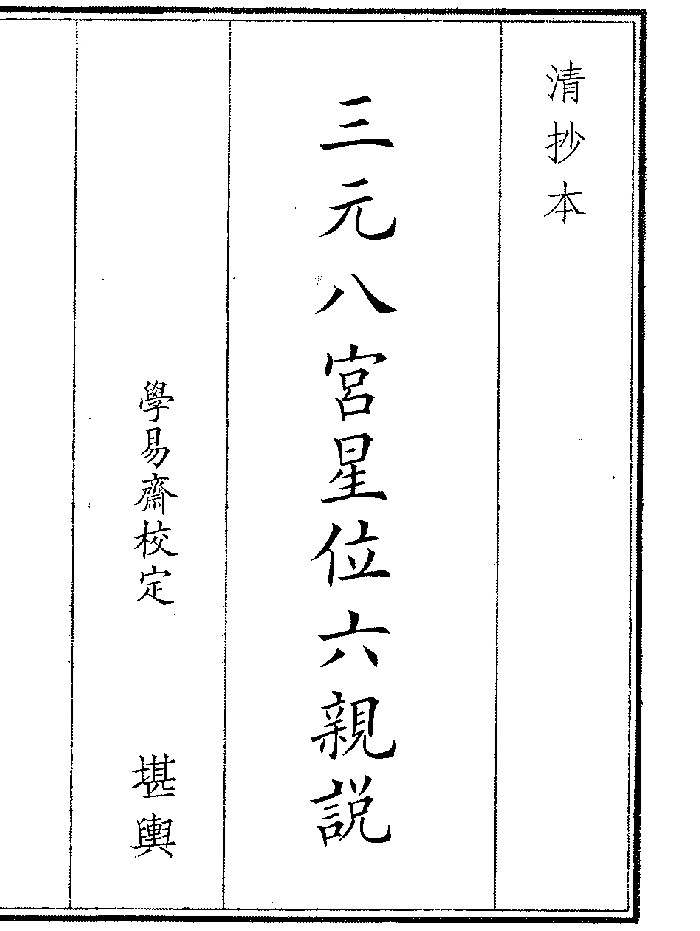 清抄本
三元八宮星位六親説
學易齋校定
堪輿